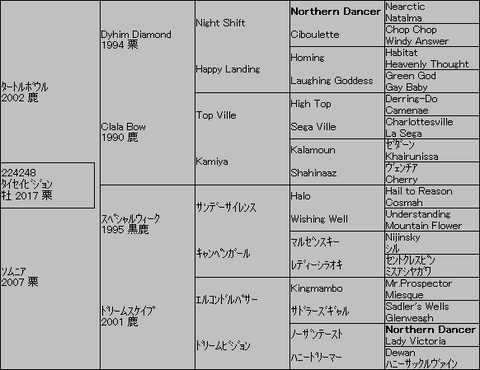 ﾀｰﾄﾙﾎﾞｳﾙ
2002 鹿
224248
ﾀｲｾｲﾋﾞｼﾞｮﾝ
牡 2017 栗
ｿﾑﾆｱ
2007 栗
Dyhim Diamond
1994 栗
Clala Bow
1990 鹿
ｽﾍﾟｼｬﾙｳｨｰｸ
1995 黒鹿
ﾄﾞﾘｰﾑｽｹｲﾌﾟ
2001 鹿
Night Shift
Happy Landing
Top Ville
Kamiya
ｻﾝﾃﾞｰｻｲﾚﾝｽ
ｷｬﾝﾍﾟﾝｶﾞｰﾙ
ｴﾙｺﾝﾄﾞﾙﾊﾟｻｰ
ﾄﾞﾘｰﾑﾋﾞｼﾞｮﾝ
Northern Dancer
Ciboulette
Homing
Laughing Goddess
High Top
Sega Ville
Kalamoun
Shahinaaz
Halo
Wishing Well
ﾏﾙｾﾞﾝｽｷｰ
ﾚﾃﾞｨｰｼﾗｵｷ
Kingmambo
ｻﾄﾞﾗｰｽﾞｷﾞｬﾙ
ﾉｰｻﾞﾝﾃｰｽﾄ
ﾊﾆｰﾄﾞﾘｰﾏｰ
Nearctic
Natalma
Chop Chop
Windy Answer
Habitat
Heavenly Thought
Green God
Gay Baby
Derring-Do
Camenae
Charlottesville
La Sega
ｾﾞﾀﾞｰﾝ
Khairunissa
ｳﾞｪﾝﾁｱ
Cherry
Hail to Reason
Cosmah
Understanding
Mountain Flower
Nijinsky
ｼﾙ
ｾﾝﾄｸﾚｽﾋﾟﾝ
ﾐｽｱｼﾔｶﾞﾜ
Mr.Prospector
Miesque
Sadler's Wells
Glenveagh
Northern Dancer
Lady Victoria
Dewan
ﾊﾆｰｻｯｸﾙｳﾞｧｲﾝ